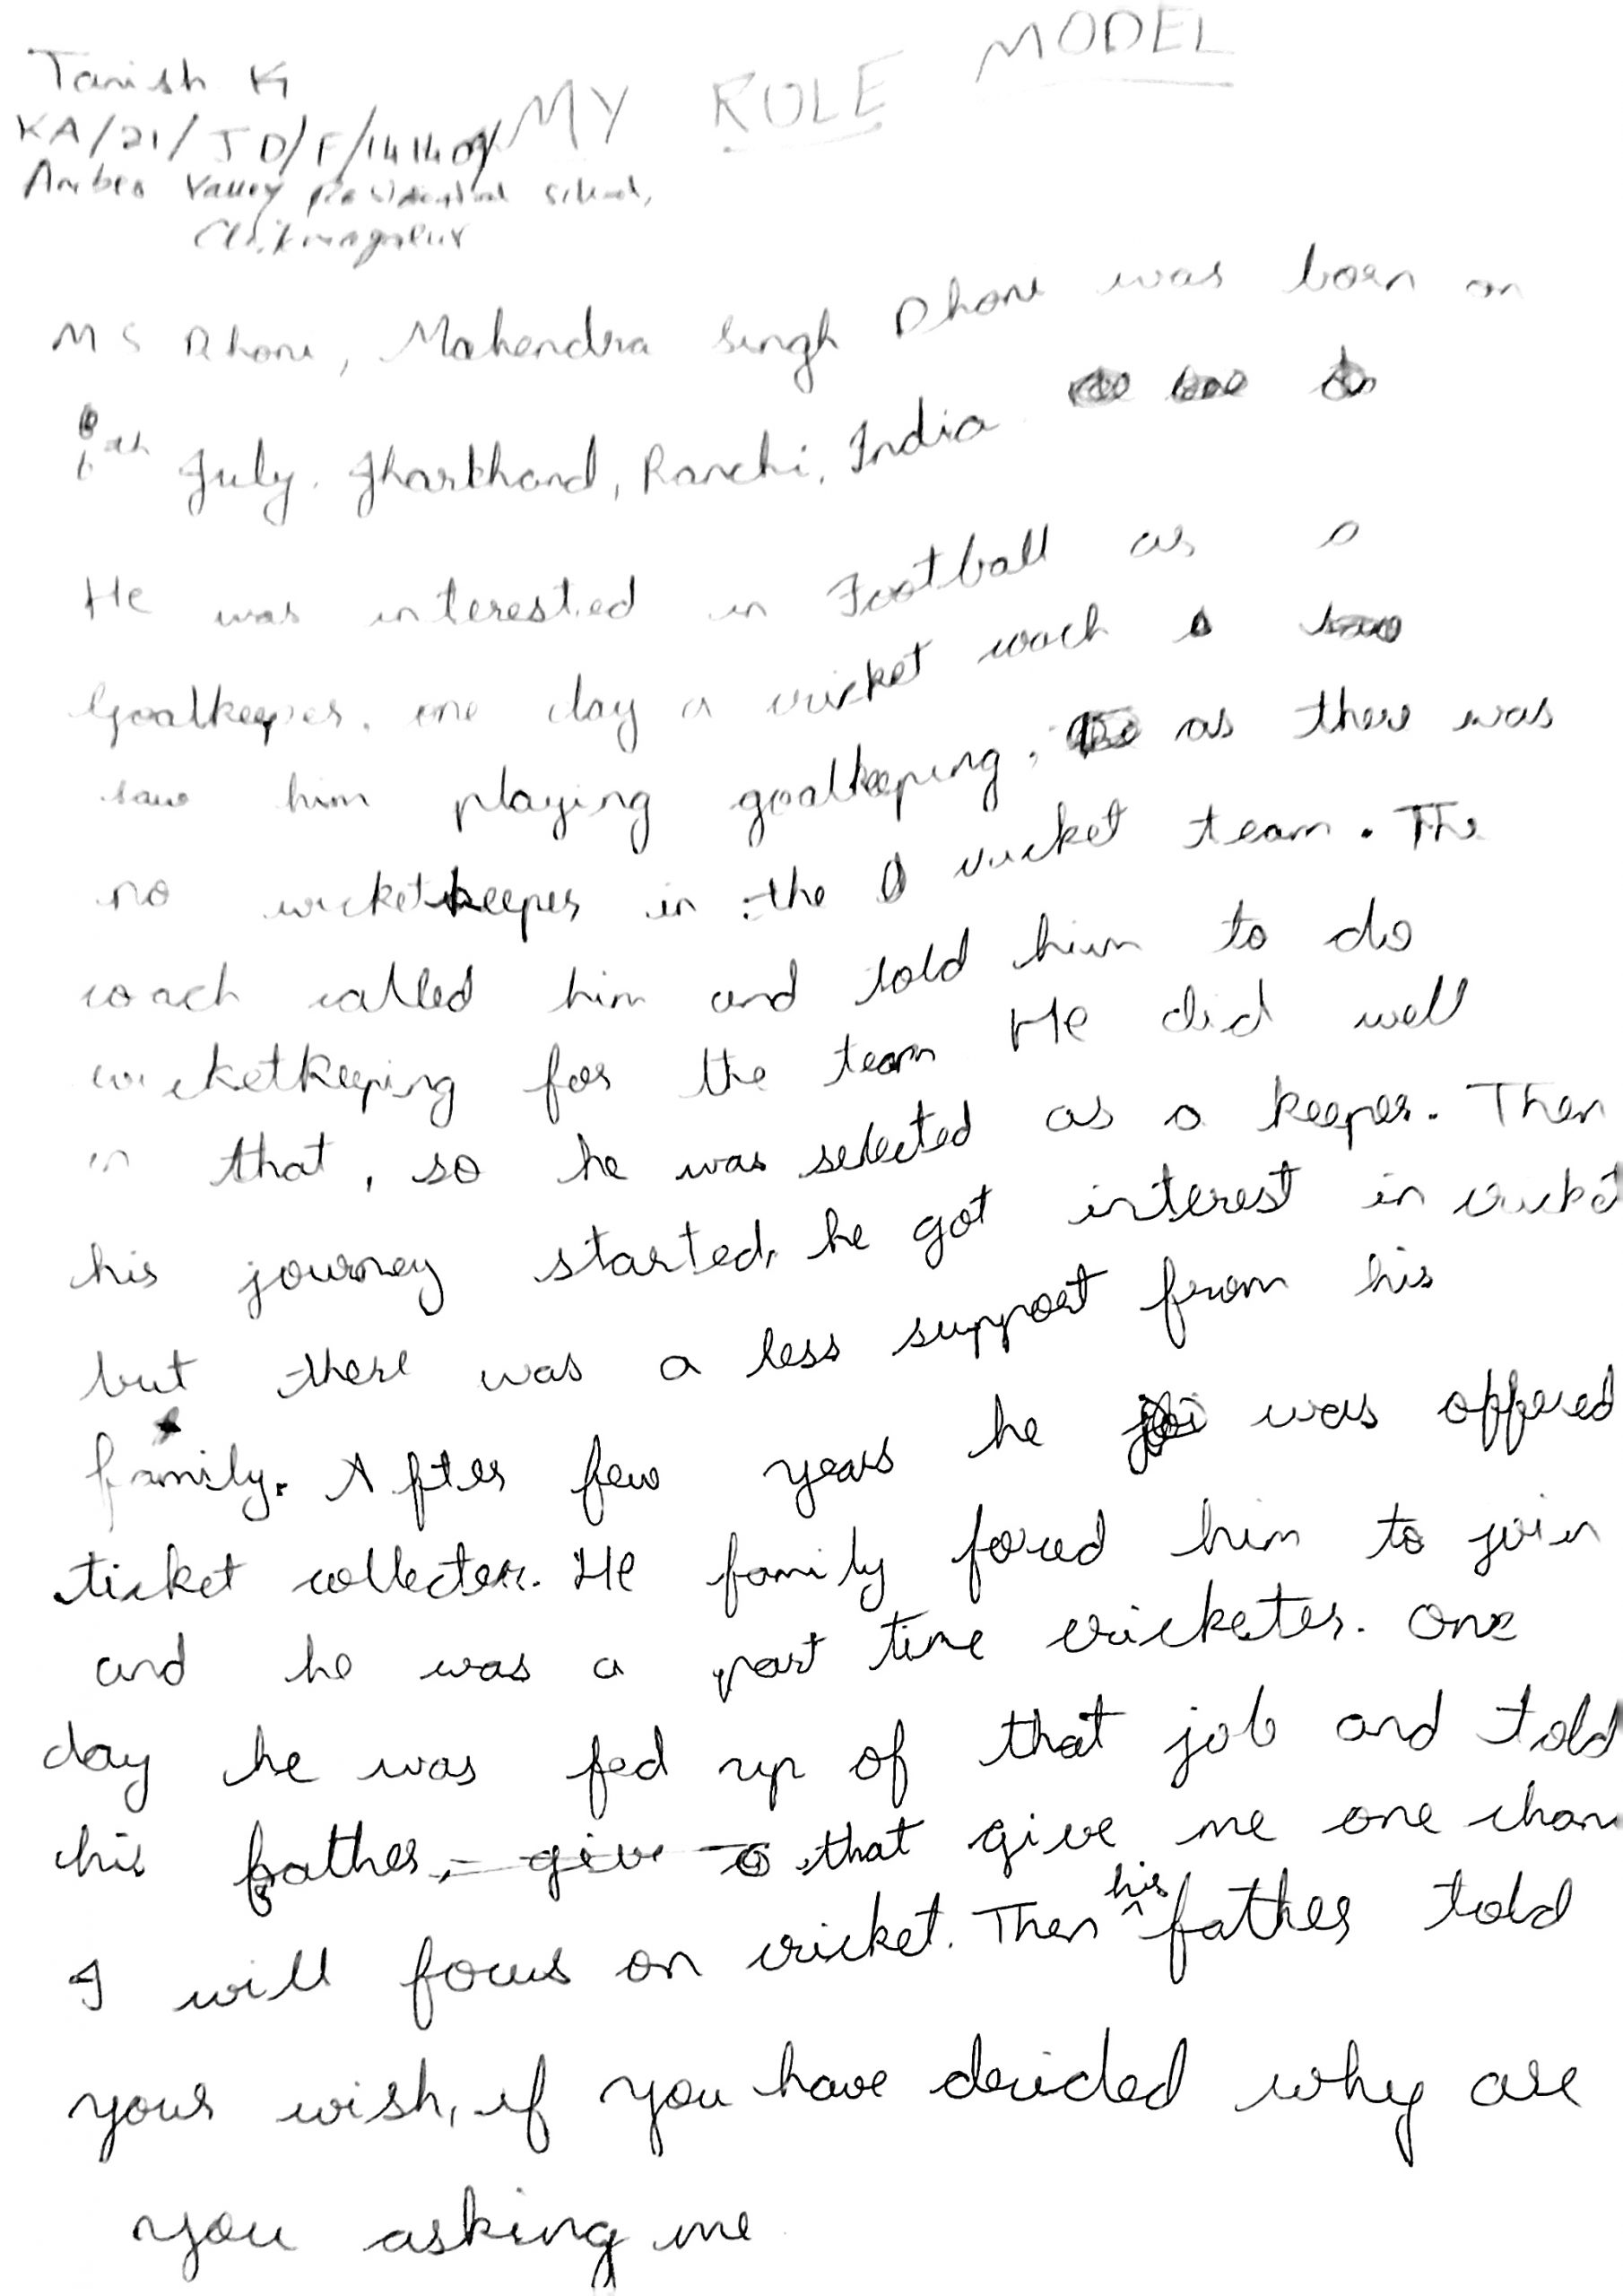 MY ROLE MODEL
Tanish K
KA/21/JD/F/1414
Amber Valley Residential School,
Chikmagalur
MS Dhoni, Mahendra Singh Dhoni was born on
th July. Jharkhand, Ranchi, India
He was interested in Football as a
Goalkeeper. one day a cricket coach
saw him playing goalkeeping. as there was
no wicketkeeper in the cricket team. The
coach called him and told him to do
wicketkeeping for the team He did well
in that, so he was selected as a keeper. Then
his journey started, he got interest in cricket
but there was a less support from his
family. After few years he was offered
ticket collecter. He family forced him to join
and he was a part time cricketer. One
day he was fed up of that job and told
his father, that give me one chan
I will focus on cricket. Then his father told
your wish, if you have decided why are
you asking me